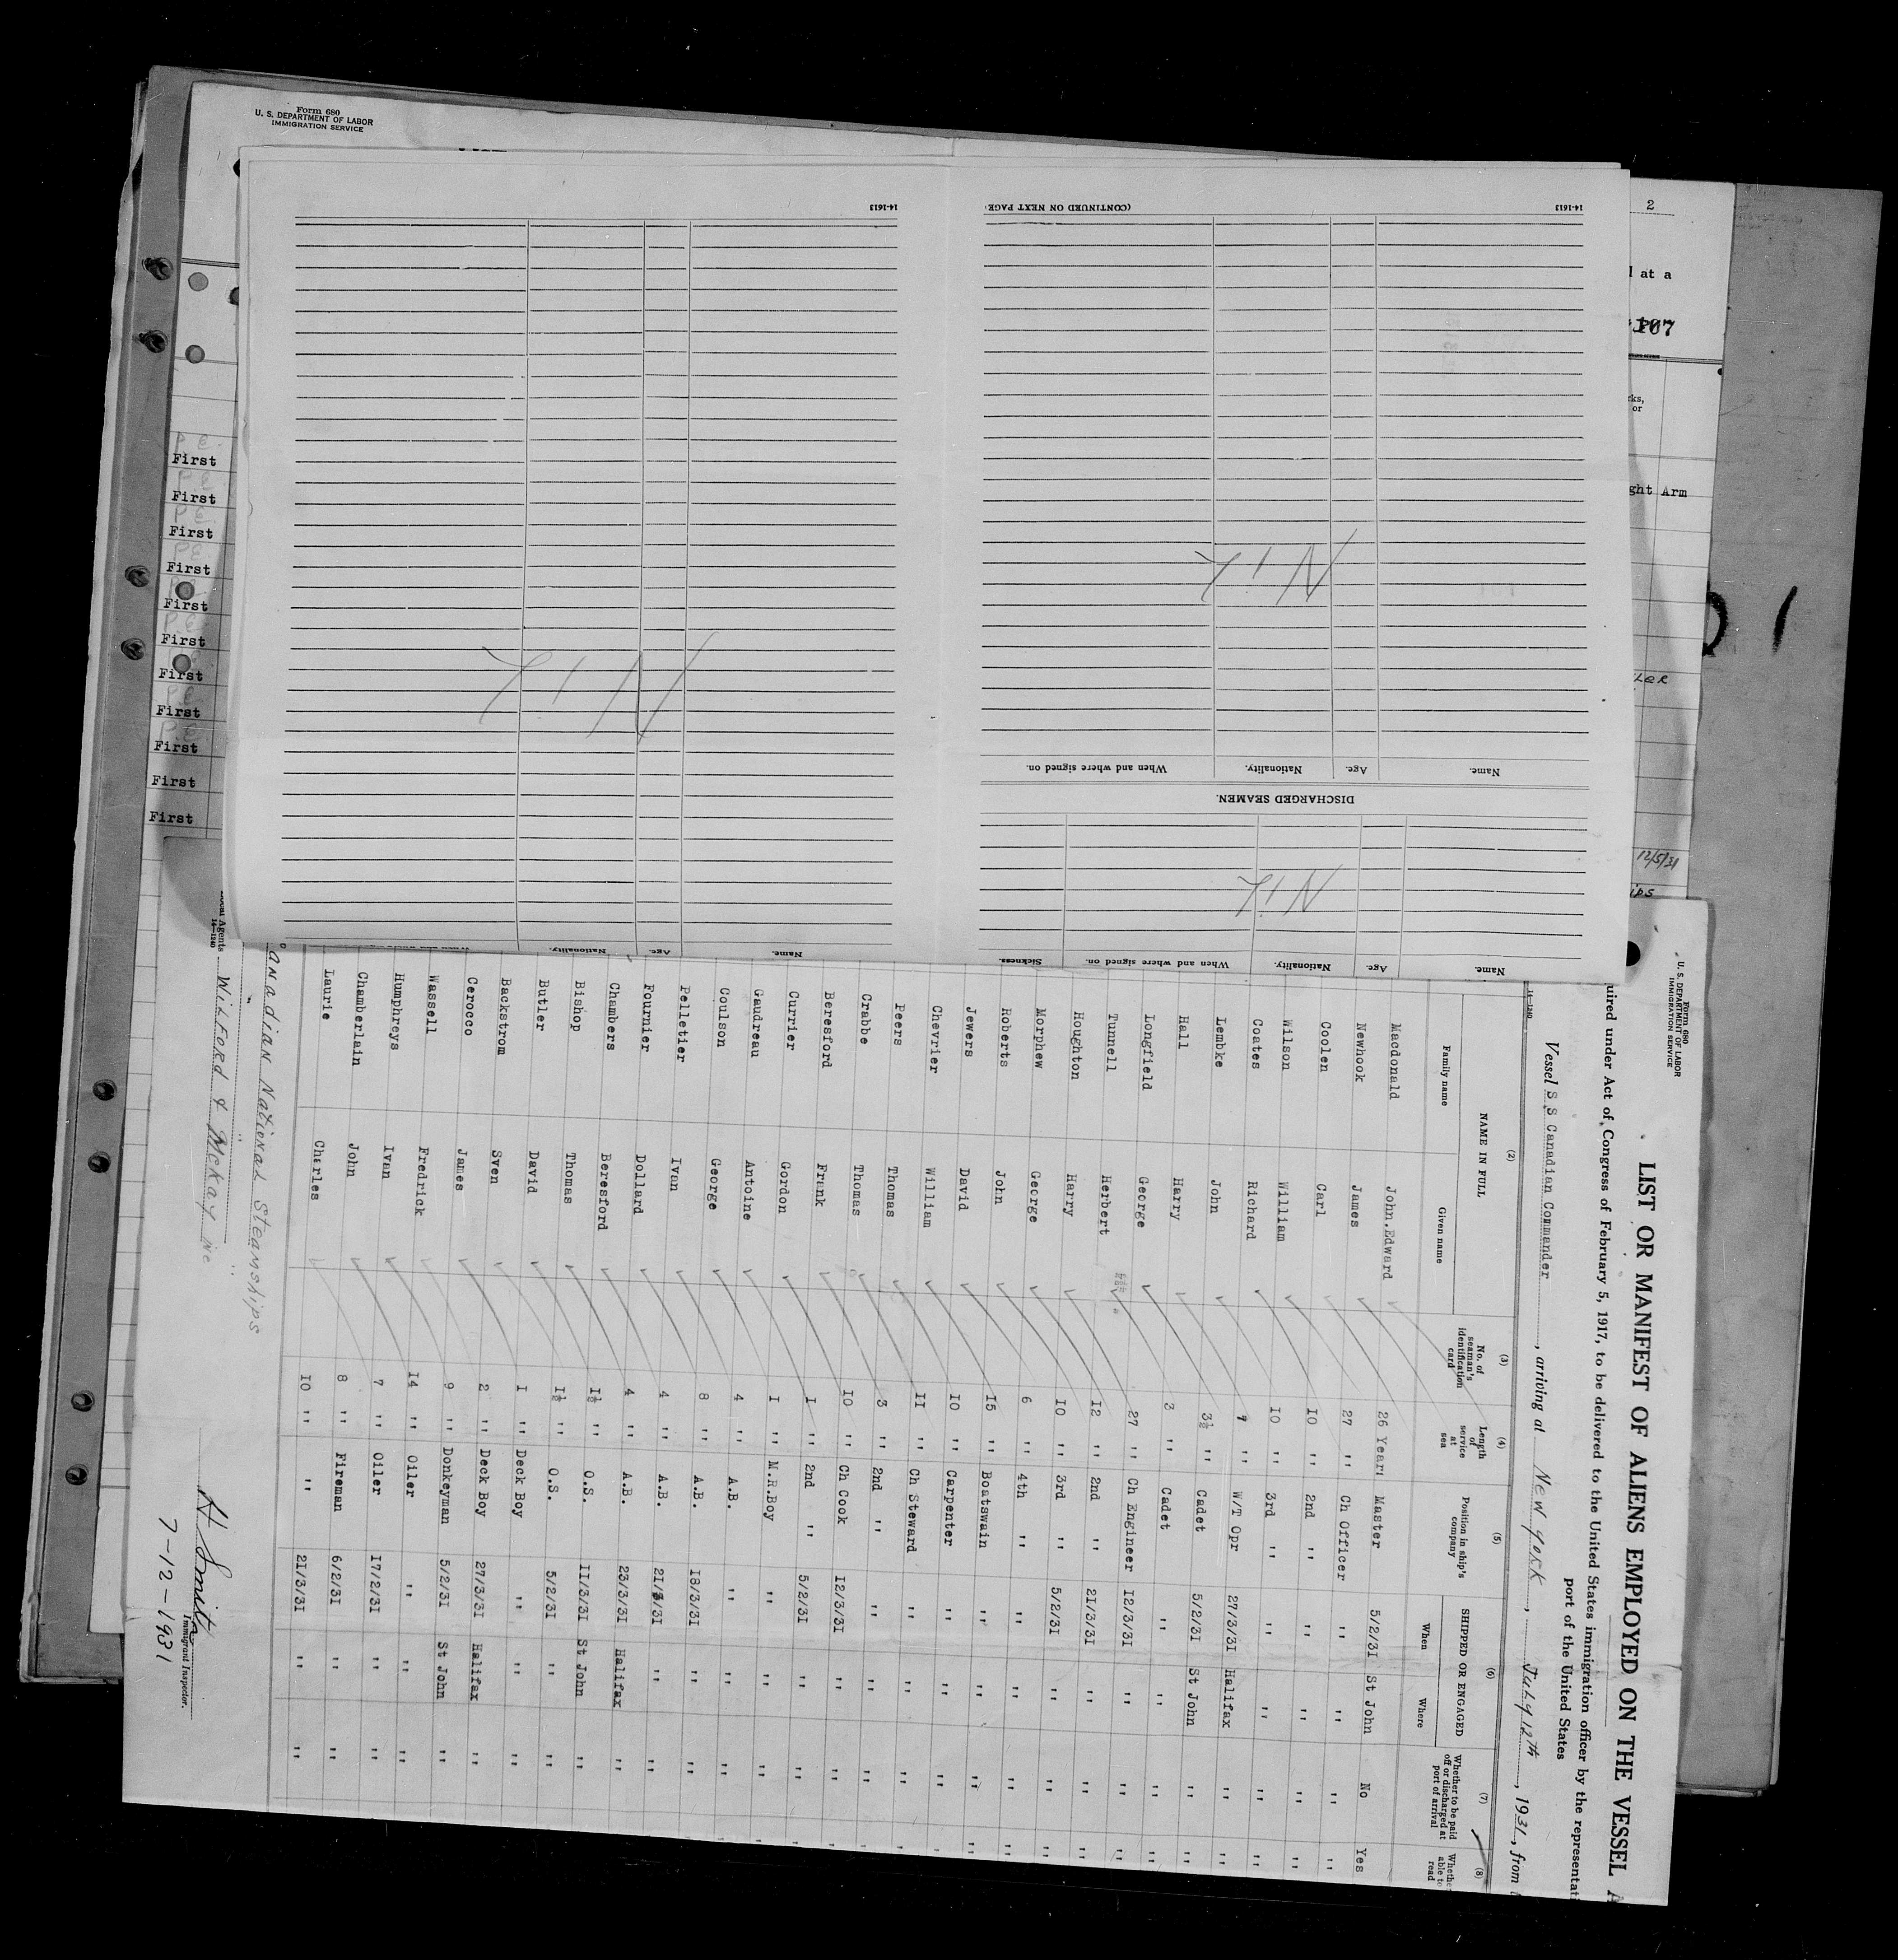 Form 680
U. S. DEPARTMENT OF LABOR
IMMIGRATION SERVICE
2
at a
107
ks,
or
ght Arm
First
First
First
First
First
First
First
First
First
First
First
12/5/31
14-1613
(CONTINUED ON NEXT PAGE
14-1613
Nil
Nil
Name. Age. Nationality. When and where signed on.
DISCHARGED SEAMEN.
Nil
Name. Age. Nationality. When and where signed on. Sickness.
Name. Age. Nationality.
Form 680
U. S. DEPARTMENT OF LABOR
IMMIGRATION SERVICE
LIST OR MANIFEST OF ALIENS EMPLOYED ON THE VESSEL A
uired under Act of Congress of February 5, 1917, to be delivered to the United States immigration officer by the representati
port of the United States
Vessel S S Canadian Commander, arriving at New York, July 12th, 1931, from
(2) (3) (4) (5) (6) (7) (8)
NAME IN FULL No. of seaman's identification card Length of service at sea Position in ship's company SHIPPED OR ENGAGED Whether to be paid off or discharged at port of arrival Whether able to read
Family name Given name When Where
Macdonald John.Edward 26 Years Master 5/2/31 St John No Yes
Newhook James 27 " Ch Officer " " " "
Coolen Carl 10 " 2nd " " " " "
Wilson William 10 " 3rd " " " " "
Coates Richard 7 " W/T Opr 27/3/31 Halifax " "
Lembke John 3½ " Cadet 5/2/31 St John " "
Hall Harry 3 " Cadet " " " "
Longfield George 27 " Ch Engineer 12/3/31 " " "
Tunnell Herbert 12 " 2nd " 21/3/31 " " "
Houghton Harry 10 " 3rd " 5/2/31 " " "
Morphew George 6 " 4th " " " " "
Roberts John 15 " Boatswain " " " "
Jewers David 10 " Carpenter " " " "
Chevrier William 11 " Ch Steward " " " "
Peers Thomas 3 " 2nd " " " " "
Crabbe Thomas 10 " Ch Cook 12/3/31 " "
Beresford Frank 1 " 2nd " 5/2/31 " "
Currier Gordon 1 " M.R.Boy " " "
Gaudreau Antoine 4 " A.B. " " "
Coulson George 8 " A.B. 18/3/31 " "
Pelletier Ivan 4 " A.B. 21/3/31 " "
Fournier Dollard 4 " A.B. 23/3/31 Halifax "
Chambers Beresford 1½ " O.S. 11/3/31 St John "
Bishop Thomas 1½ " O.S. 5/2/31 " "
Butler David 1 " Deck Boy " " "
Backstrom Sven 2 " Deck Boy 27/3/31 Halifax "
Cerocco James 9 " Donkeyman 5/2/31 St John "
Wassell Fredrick 14 " Oiler " " "
Humphreys Ivan 7 " Oiler 17/2/31 " "
Chamberlain John 8 " Fireman 6/2/31 " "
Laurie Charles 10 " " 21/3/31 " "
anadian National Steamships
Agents Wilford & McKay Inc
14-1240
H Smith
Immigrant Inspector.
7-12-1931